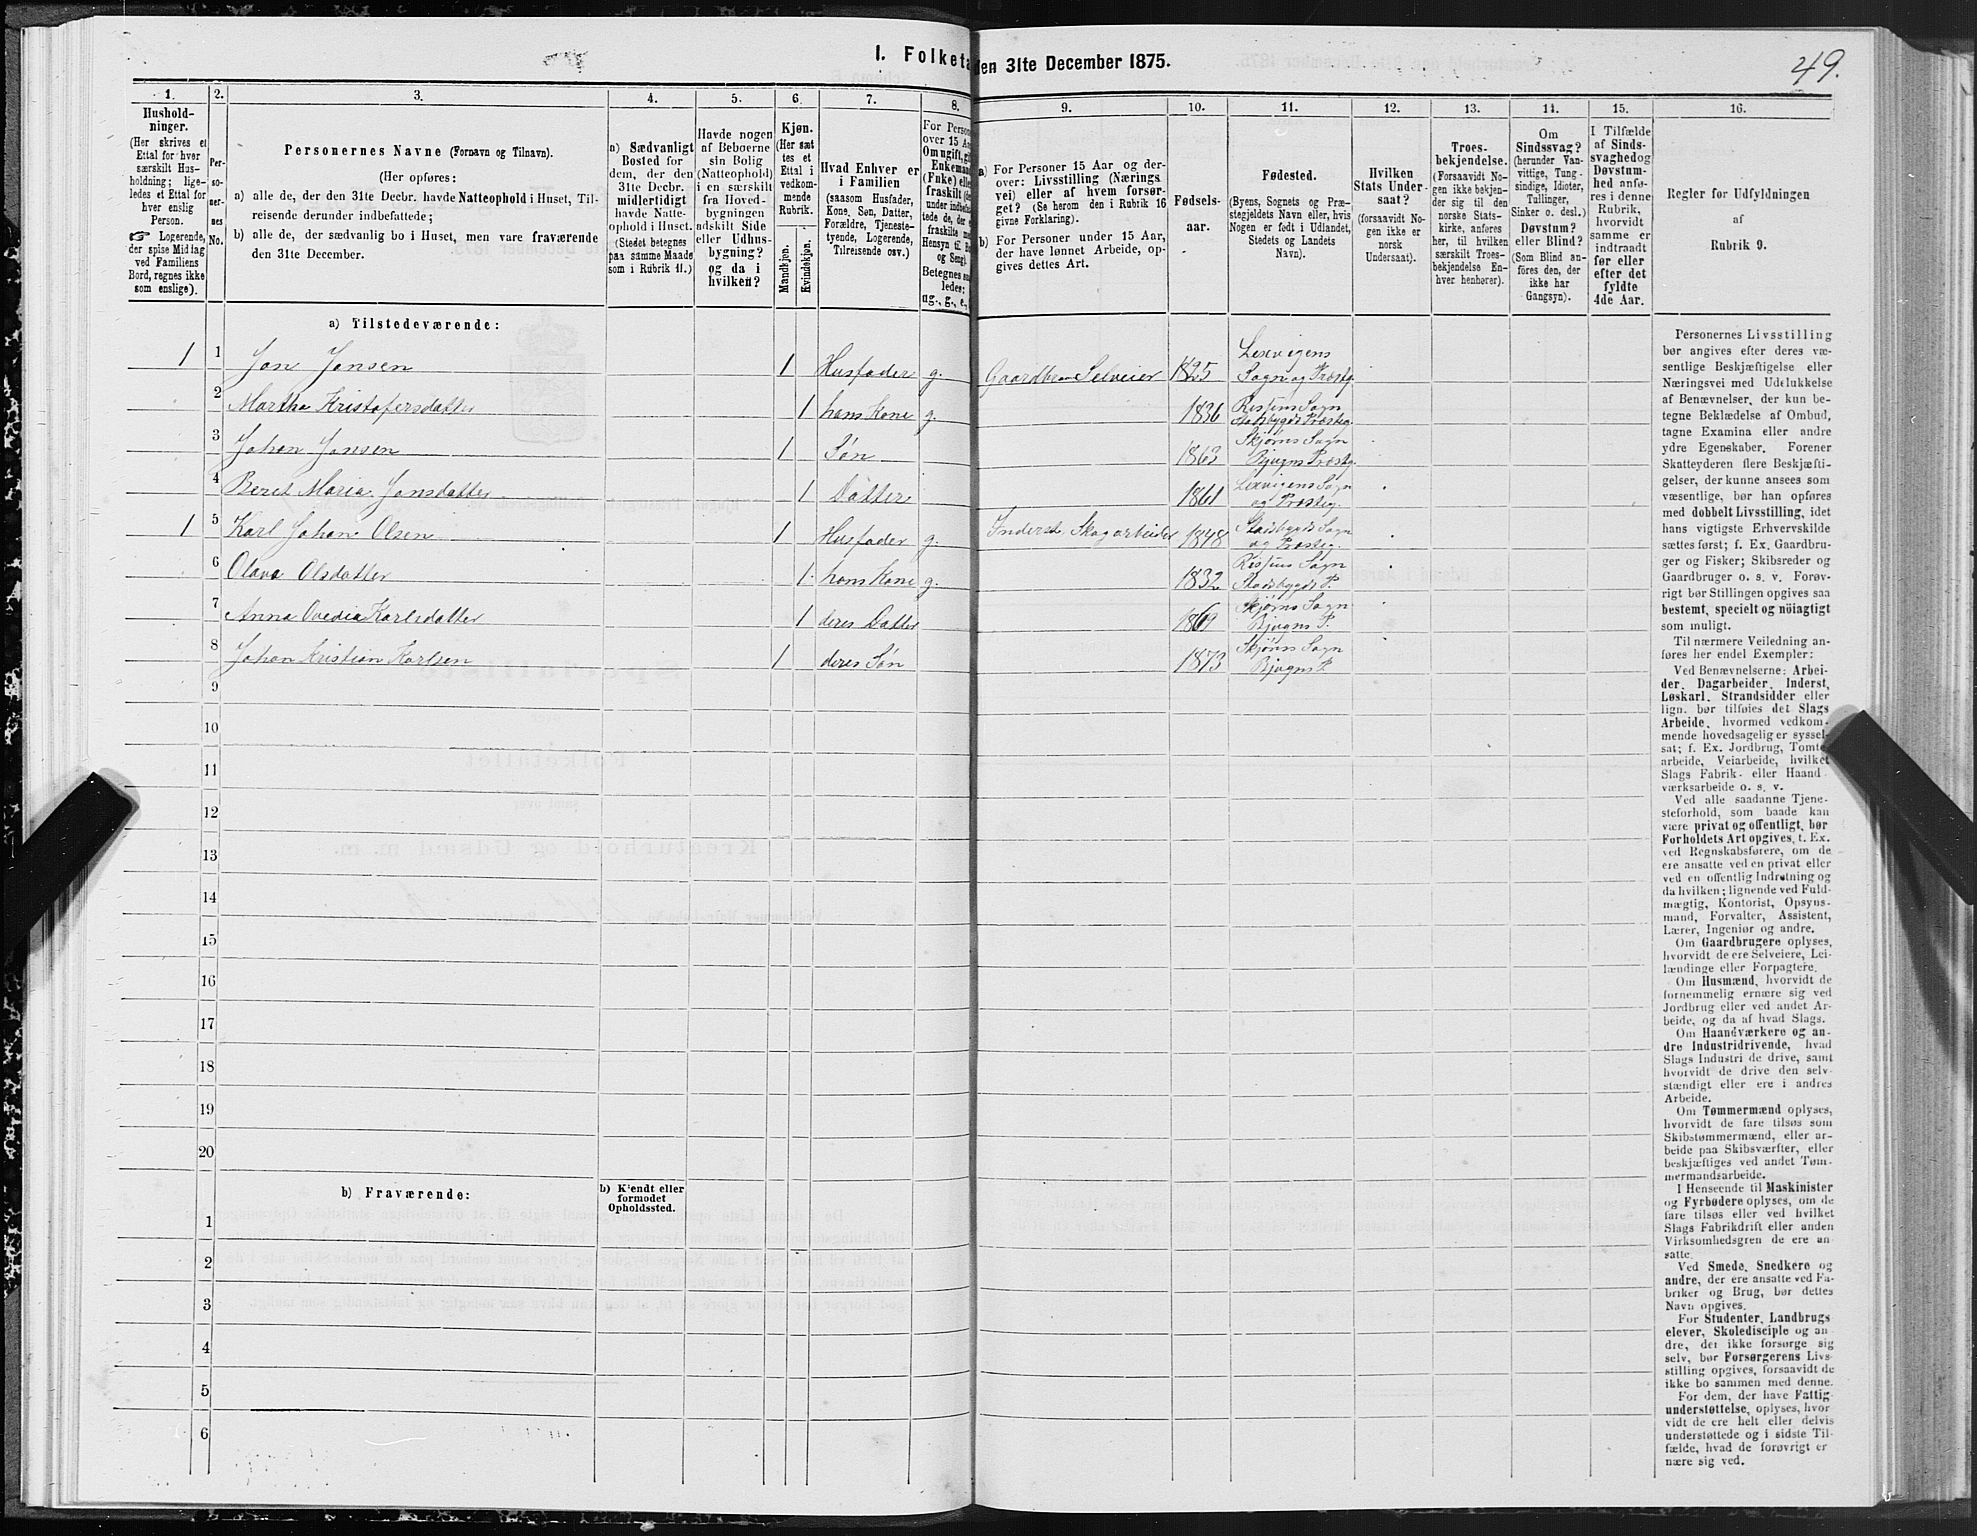 I. Folketa
den 31te December 1875.
49.
1.
2.
3.
4.
5.
6.
7.
8.
9.
10.
11.
12.
13.
14.
15.
16.
Hushold-
ninger.
(Her skrives et
Ettal for hver
særskilt Hus-
holdning; lige-
ledes et Ettal for
hver enslig
Person.
☞ Logerende,
der spise Middag
ved Familiens
Bord, regnes ikke
som enslige).
Per-
so-
ner-
nes
No.
Personernes Navne (Fornavn og Tilnavn).
(Her opføres:
a) alle de, der den 31te Decbr. havde Natteophold i Huset, Til-
reisende derunder indbefattede;
b) alle de, der sædvanlig bo i Huset, men vare fraværende
den 31te December.
a) Sædvanligt
Bosted for
dem, der den
31te Decbr.
midlertidigt
havde Natte-
ophold i Huset.
(Stedet betegnes
paa samme Maade
som i Rubrik 11.)
Havde nogen
af Beboerne
sin Bolig
(Natteophold)
i en særskilt
fra Hoved-
bygningen
adskilt Side
eller Udhus-
bygning?
og da i
hvilken?
Kjøn.
(Her sæt
tes et
Ettal i
vedkom-
mende
Rubrik.
Mandkjøn.
Kvindekjøn.
Hvad Enhver er
i Familien
(saasom Husfader,
Kone, Søn, Datter,
Forældre, Tjeneste-
tyende, Logerende,
Tilreisende osv.)
For Person
over 15 Aa
Om ugift, gi
Enkemand
(Enke) elle
fraskilt (de
under indbefat-
tede de, der e
fraskilte me
Hensyn til Bo
og Seng).
Betegnes saa
ledes:
ug., g., e.,
a) For Personer 15 Aar og der-
over: Livsstilling (Nærings
vei) eller af hvem forsør-
get? (Se herom den i Rubrik 16
givne Forklaring).
b) For Personer under 15 Aar,
der have lønnet Arbeide, op-
gives dettes Art.
Fødsels-
aar.
Fødested.
(Byens, Sognets og Præ-
stegjeldets Navn eller, hvis
Nogen er født i Udlandet,
Stedets og Landets
Navn).
Hvilken
Stats Under-
saat?
(forsaavidt No-
gen ikke er
norsk
Undersaat).
Troes-
bekjendelse.
(Forsaavidt No-
gen ikke bekjen-
der sig til den
norske Stats-
kirke, anføres
her, til hvilken
særskilt Troes-
bekjendelse En-
hver henhører).
Om
Sindssvag?
(herunder Van-
vittige, Tung-
sindige, Idioter,
Tullinger,
Sinker o. desl.)
Døvstum?
eller Blind?
(Som Blind an-
føres den, der
ikke har
Gangsyn).
I Tilfælde
af Sinds-
svaghed og
Døvstum-
hed anfø-
res i denne
Rubrik,
hvorvidt
samme er
indtraadt
før eller
efter det
fyldte
4de Aar.
Regler for Udfyldningen
af
Rubrik 9.
a) Tilstedeværende:
1 1 Jon Jonsen 1 Husfader g. Gaardbr. Selveier 1825 Lexvigens
Sogn og Præstg.
2 Martha Kristofersdatter 1 hans Kone g. 1836 Rissens Sogn
Stadsbygds Præstig.
3 Johan Jonsen 1 Søn 1863 Skjørns Sogn
Bjugns Præstg.
4 Beret Maria Jonsdatter 1 Datter 1861 Lexvigens Sogn
og Præsteg.
1 5 Karl Johan Olsen 1 Husfader g. Inderst, Skogarbeider 1848 Stadsbygds Sogn
og Præsteg.
6 Olava Olsdatter 1 hans Kone g. 1832 Rissens Sogn
Stadsbygds P.
7 Anna Ovedia Karlsdatter 1 deres Datter 1869 Skjørns Sogn
Bjugns P.
8 Johan Kristian Karlsen 1 deres Søn 1873 Skjørns Sogn
Bjugns P.
9
10
11
12
13
14
15
16
17
18
19
20
b) Fraværende:
b) Kjendt eller
formodet
Opholdssted.
1
2
3
4
5
6
Personernes Livsstilling
bør angives efter deres væ-
sentlige Beskjæftigelse eller
Næringsvei med Udelukkelse
af Benævnelser, der kun be-
tegne Beklædelse af Ombud,
tagne Examina eller andre
ydre Egenskaber. Forener
Skatteyderen flere Beskjæfti-
gelser, der kunne ansees som
væsentlige, bør han opføres
med dobbelt Livsstilling, idet
hans vigtigste Erhvervskilde
sættes først; f. Ex. Gaardbru-
ger og Fisker; Skibsreder og
Gaardbruger o. s. v. Forøv-
rigt bør Stillingen opgives saa
bestemt, specielt og nöiagtigt
som muligt.
Til nærmere Veiledning an-
føres her endel Exempler:
Ved Benævnelserne: Arbei-
der, Dagarbeider, Inderst,
Løskarl, Strandsidder eller
lign. bør tilføies det Slags
Arbeide, hvormed vedkom-
mende hovedsagelig er syssel-
sat; f. Ex. Jordbrug, Tomte-
arbeide, Veiarbeide, hvilket
Slags Fabrik- eller Haand-
værksarbeide o. s. v.
Ved alle saadanne Tjene-
steforhold, som baade kan
være privat og offentligt, bør
Forholdets Art opgives, t. Ex.
ved Regnskabsførere, om de
ere ansatte ved en privat eller
ved en offentlig Indretning og
da hvilken; lignende ved Fuld-
mægtig, Kontorist, Opsyns-
mand, Forvalter, Assistent,
Lærer, Ingeniør og andre.
Om Gaardbrugere oplyses,
hvorvidt de ere Selveiere, Lei-
lændinge eller Forpagtere.
Om Husmænd, hvorvidt de
fornemmelig ernære sig ved
Jordbrug eller ved andet Ar-
beide, og da af hvad Slags.
Om Haandværkere og an-
dre Industridrivende, hvad
Slags Industri de drive, samt
hvorvidt de drive den selv-
stændigt eller ere i andres
Arbeide.
Om Tømmermænd oplyses,
hvorvidt de fare tilsøs som
Skibstømmermænd, eller ar-
beide paa Skibsværfter, eller
beskjæftiges ved andet Tøm-
mermandsarbeide.
I Henseende til Maskinister
og Fyrbødere oplyses, om de
fare tilsøs eller ved hvilket
Slags Fabrikdrift eller anden
Virksomhedsgren de ere an-
satte.
Ved Smede, Snedkere og
andre, der ere ansatte ved Fa-
briker og Brug, bør dettes
Navn opgives.
For Studenter, Landbrugs
elever, Skoledisciple og an-
dre, der ikke forsørge sig
selv, bør Forsørgerens Livs-
stilling opgives, forsaavidt de
ikke bo sammen med denne.
For dem, der have Fattig-
understøttelse, oplyses, hvor
vidt de ere helt eller delvis
understøttede og i sidste Til-
fælde, hvad de forøvrigt er
nære sig ved.